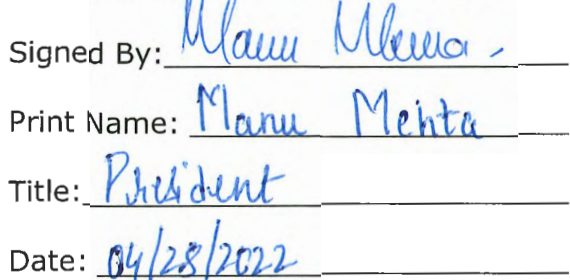 Signed By: Manu Mehta
Print Name: Manu Mehta
Title: President
Date: 04/28/2022